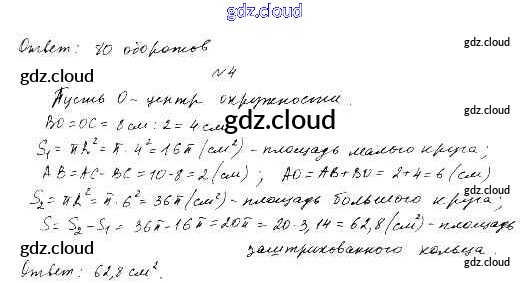 gdz.cloud
Ответ: 80 оборотов
gdz.cloud
gdz.cloud
№4
Пусть О - центр окружности.
BO = OC = 8 см : 2 = 4 см
gdz.cloud
S₁ = πR² = π · 4² = 16π (см²) - площадь малого круга;
AB = AC - BC = 10 - 8 = 2 (см) ; AO = AB + BO = 2 + 4 = 6 (см)
gdz.cloud
gdz.cloud
S₂ = πR² = π · 6² = 36π (см²) - площадь большого круга;
S = S₂ - S₁ = 36π - 16π = 20π = 20 · 3,14 = 62,8 (см²) - площадь
заштрихованного кольца.
gdz.cloud
gdz.cloud
Ответ: 62,8 см².
gdz.cloud